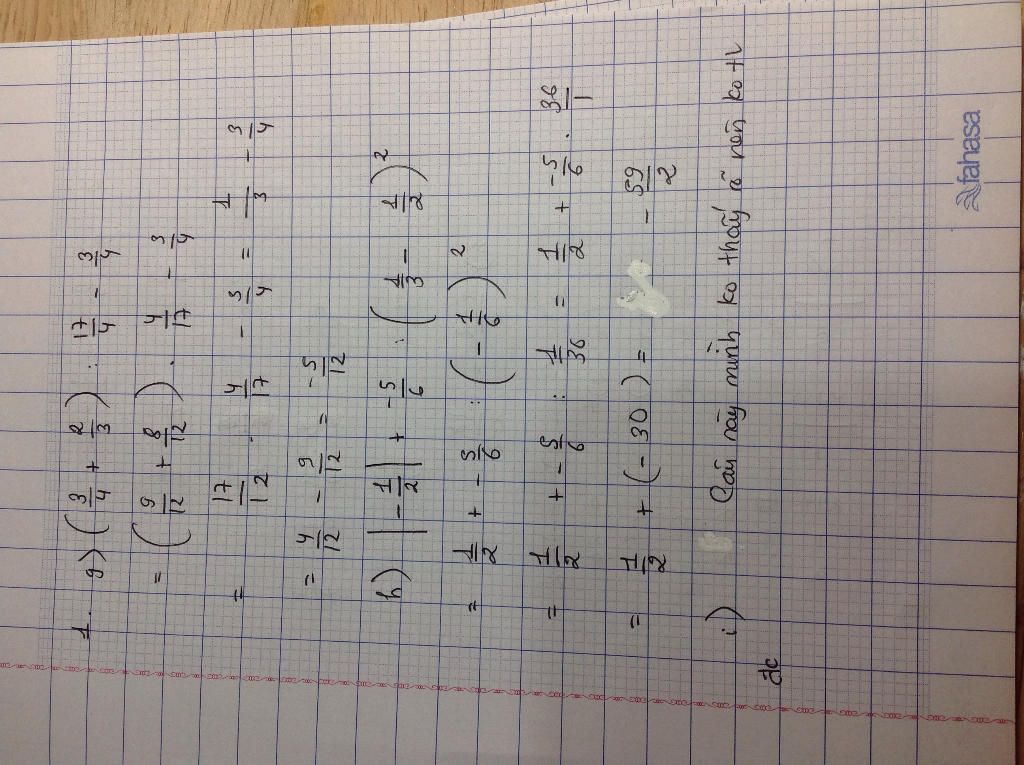 1. g) (3/4 + 2/3) : 17/4 - 3/4
= (9/12 + 8/12) . 4/17 - 3/4
= 17/12 . 4/17 - 3/4 = 1/3 - 3/4
= 4/12 - 9/12 = -5/12
h) |-1/2| + -5/6 : (1/3 - 1/2)²
= 1/2 + -5/6 : (-1/6)²
= 1/2 + -5/6 : 1/36 = 1/2 + -5/6 . 36/1
= 1/2 + (-30) = -59/2
i) Câu này mình ko thấy rõ nên ko tl
đc
fahasa